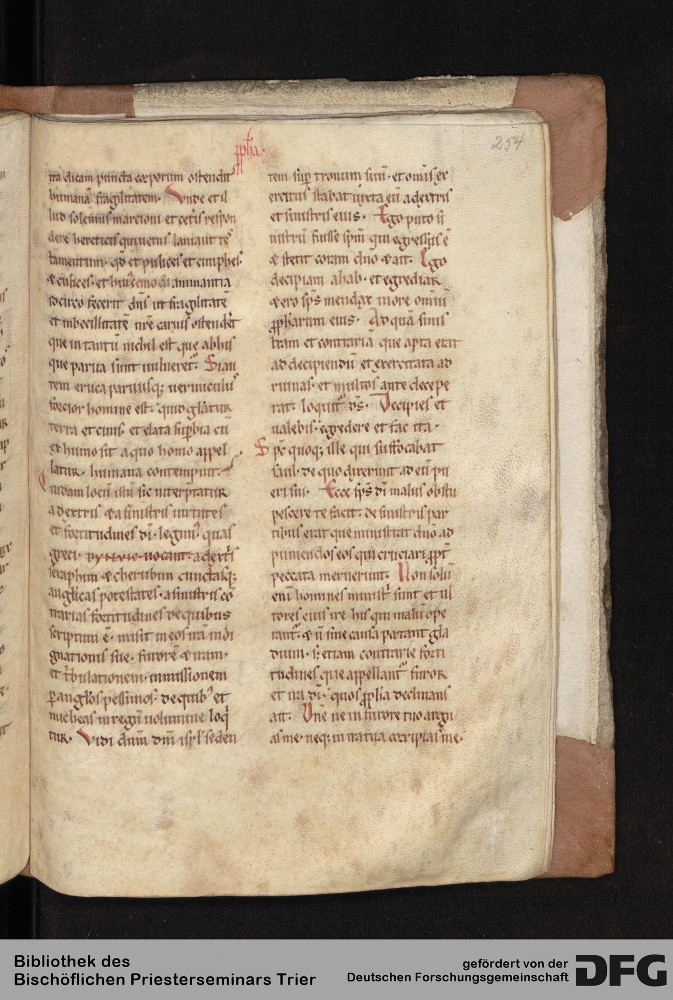 ꝓph̄a.
254
ita dicam puncta corporum ostendit
humanā fragilitatem. Unde et il
lud solemus marcioni et cet̄is respon
dere hereticis qui uetus laniant tes
tamentum. qd et pulices et ciniphes.
& culices. et hui᷒cemodi animantia
idcirco fecerit dn̄s ut fragilitatē
et inbecillitatē nr̄e carnis ostenderet
que in tantū nichil est. que ab his
que parua sunt uulneret᷑. Siau
tem eruca paruusq; uermiculus
forcior homine est. quid gl̄atur
terra et cinis. et elata sup̄bia cū
ex humo sit a quo homo appel
latur. humana contempnit.
Quidam locū istū sic interp̄tatur
a dextris & a sinistris uirtutes
et fortitudines di. legim᷒. quas
greci. uocant. a dextris
seraphim & cherubin cunctasq;
anglicas potestates. a sinistris cō
trarias fortitudines de quibus
scriptum ē. misit in eos irā indi
gnationis sue. furorē & iram.
et t̄bulationem. inmissionem
per angl̄os pessimos. de quib᷒ et
micheas in regū uolumine loq̄
tur. Uidi dn̄m dm̄ isrl̄ seden
tem sup̄ tronum suū. et om̄is ex
ercitus stabat iuxta eū a dextris
et sinistris eius. Ego puto si
nistrū fuisse sp̄m qui egressus ē
& stetit coram dn̄o & ait. Ego
decipiam ahab. et egrediar
& ero sp̄s mendax in ore omniū
ꝓph̄arum eius. Ad quā sinis
tram et contrariā que apta erat
ad decipiendū et exercitata ad
ruinas. et multos ante decepe
rat. loquit᷑ ds̄. Decipies et
ualebis. egredere et fac ita.
Sp̄c quoq; ille qui suffocabat
saul. de quo dixerunt ad eū pu
eri sui. Ecce sp̄s di malus obstu
pescere te facit. de sinistris par
tibus erat que ministrat dn̄o ad
puniendos eos qui cruciari ꝓpt̄
peccata meruerunt. Non solū
enī homines ministri sunt et ul
tores eius ire his qui malū ope
rant᷑. & n̄ sine causa portant gla
dium. s; etiam contrarie forti
tudines que appellant᷑ furor
et ira di. quos ꝓph̄a declinans
ait. Dn̄e ne in furore tuo argu
as me. neq; in ira tua corripias me.
Bibliothek des
Bischöflichen Priesterseminars Trier
gefördert von der
Deutschen Forschungsgemeinschaft
DFG